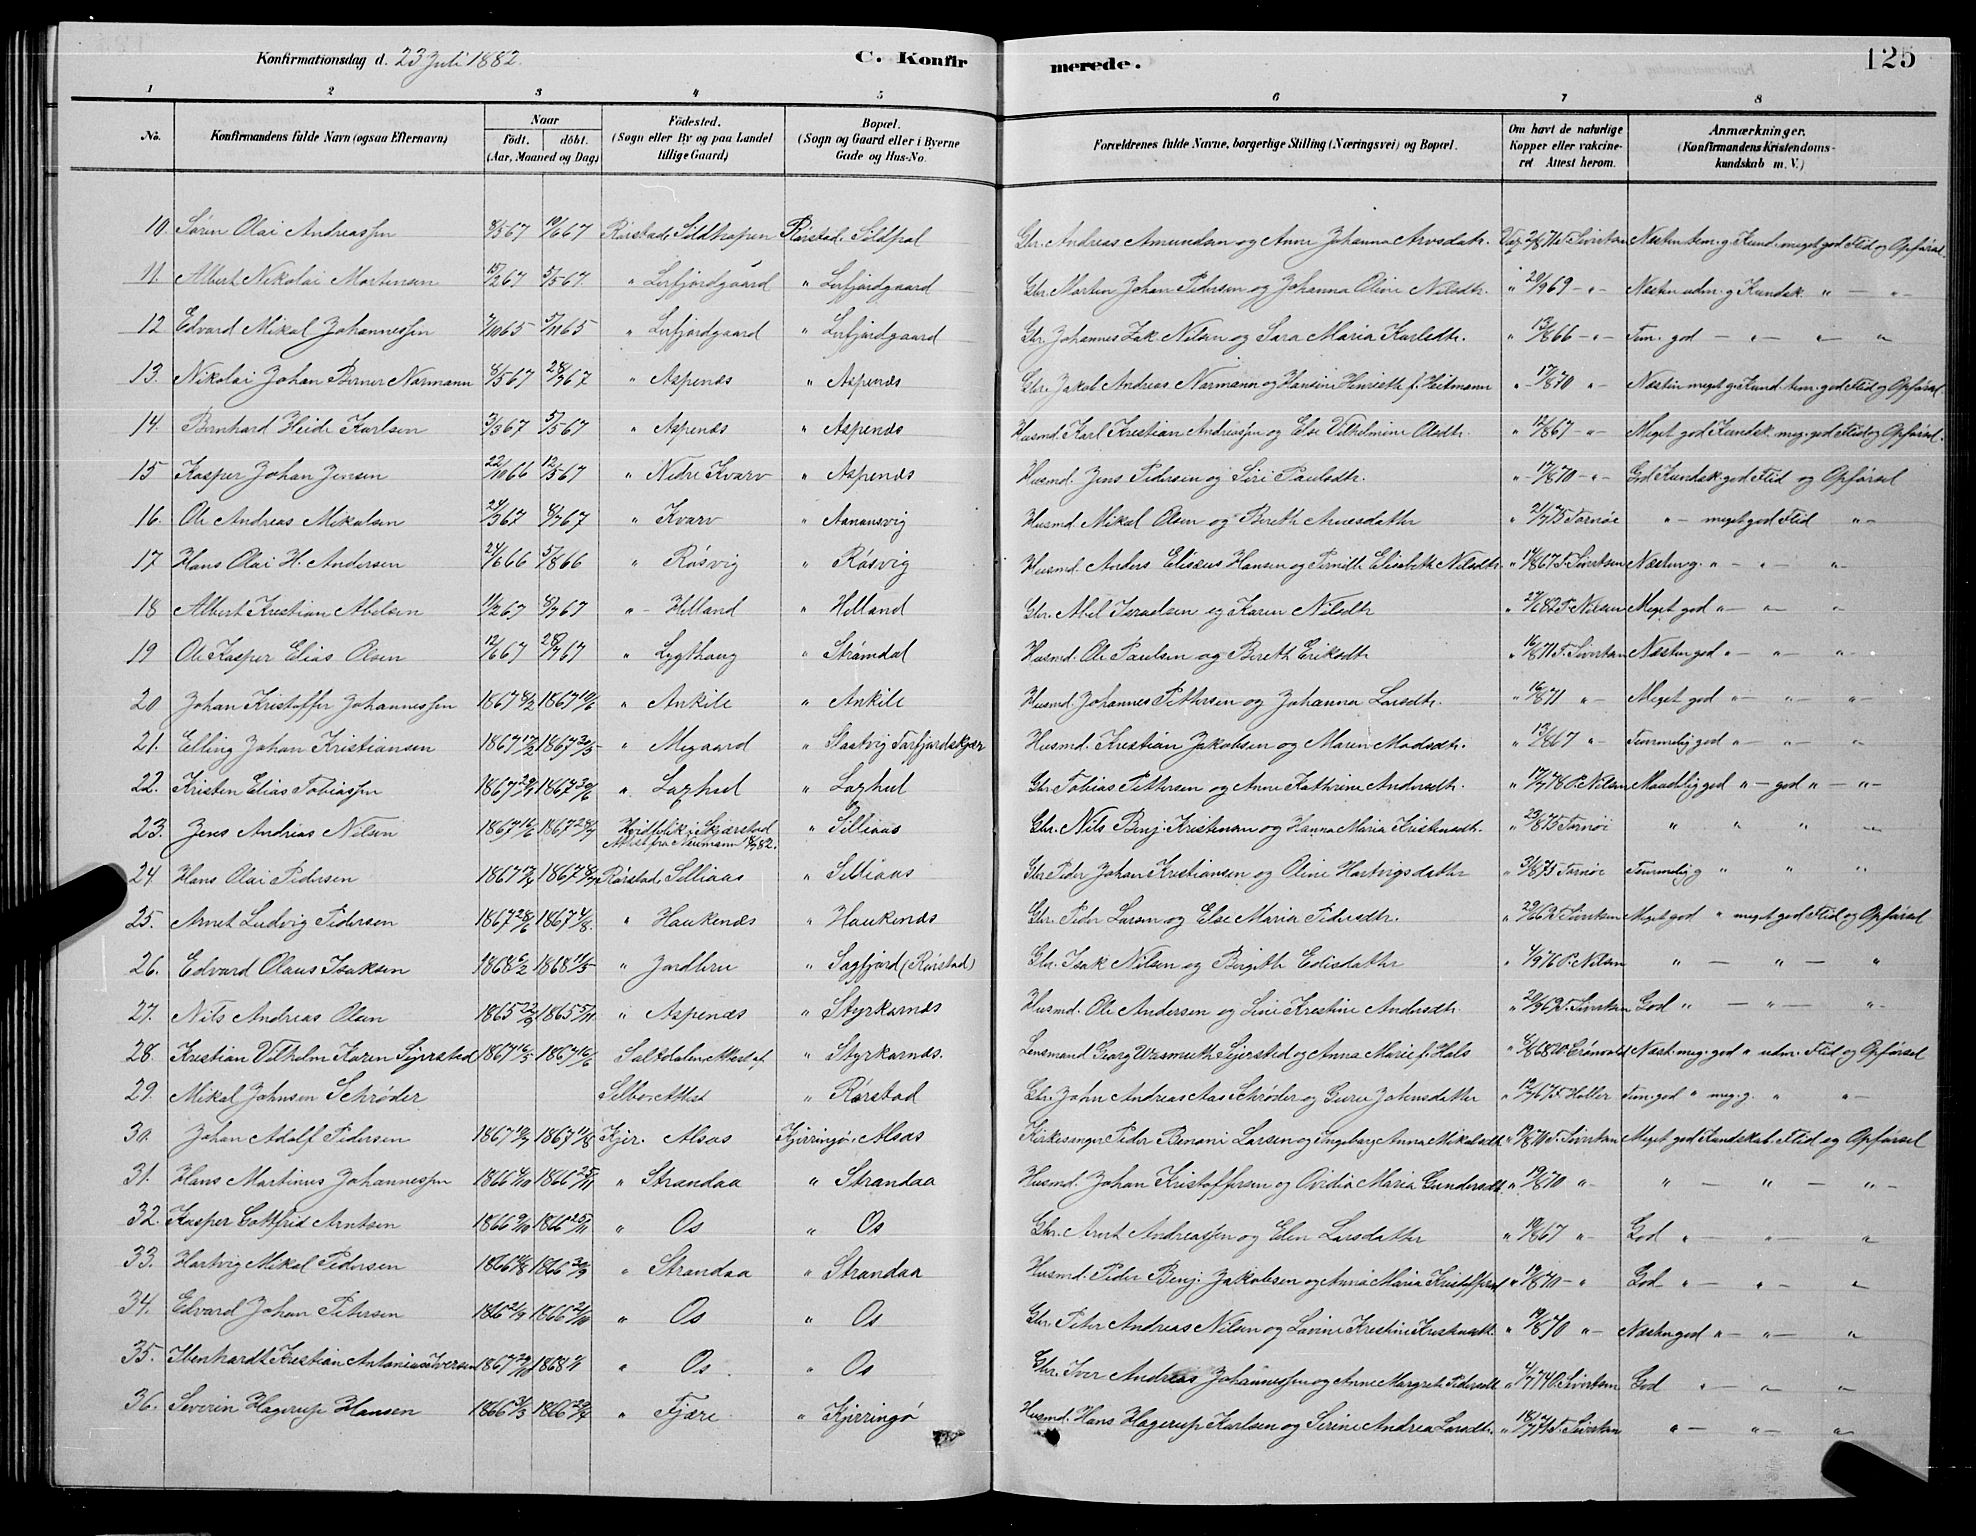 Konfirmationsdag d. 23 Juli 1882.
C. Konfirmerede.
125
1 2 3 4 5 6 7 8
No. Konfirmandens fulde Navn (ogsaa Efternavn) Naar født. døbt. (Aar, Maaned og Dag) Fødested. (Sogn eller By og paa Landet tillige Gaard) Bopæl. (Sogn og Gaard eller i Byerne Gade og Hus-No. Forældrenes fulde Navne, borgerlige Stilling (Næringsvei) og Bopæl. Om havt de naturlige Kopper eller vakcineret Attest herom. Anmærkninger. (Konfirmandens Kristendomskundskab m. V.)
10. Søren Olai Andreassen 8/5 67 10/6 67 Rørstad, Sildhopen Rørstad, Sildpol Gbr. Andreas Amundsen og Anne Johanna Arnsdatr. Vac. 2/8 71 T. Sivertsen
11. Albert Nikolai Martinsen 15/2 67 5/5 67 " Lerfjordgaard " Lerfjordgaard Gbr. Martin Johan Pedersen og Johanna Oline Nilsdtr. " 20/9 69 - " -
12 Edvard Mikal Johannessen 7/10 65 5/11 65 " Lerfjordgaard " Lerfjordgaard Gbr. Johannes Zak. Nilsen og Sara Maria Karlsdtr. " 13/8 66 - " - Tem. god - " - " "
13. Nikolai Johan Berner Normann 8/5 67 28/7 67 " Aspenæs " Aspenæs Gbr. Jakob Andreas Normann og Hansine Henriette f. Heitmann " 17/8 70 " - Næsten meget g. Kund. tem. god Flid og Opførsel
14. Bernhard Heide Karlsen 3/3 67 5/5 67 " Aspenæs " Aspenæs Husmd. Karl Kristian Andreassen og Else Vilhelmine Olsdtr. " 12/8 67 - " - Meget god Kundsk. meg. god Flid og Opførsel.
15 Kasper Johan Jensen 22/10 66 12/5 67 " Nedre Kvarv " Aspenæs Husmd. Jens Pedersen og Siri Paulsdtr. " 17/8 70 - " - God Kundsk. god Flid og Opførsel
16. Ole Andreas Mikalsen 24/3 67 8/7 67 " Kvarv " Aanansvig Husmd. Mikal Olsen og Bereth Arnesdatter " 21/7 75 Tornøe " - meget god Flid " -
17 Hans Olai H. Andersen 24/6 66 5/8 66 " Røsvig " Røsvig Husmd. Anders Elisæus Hansen og Pernille Elisabeth Nilsdtr. " 14/8 67 T. Sivertsen Næsten g. " - " - " -
18 Albert Kristian Abelsen 11/2 67 8/7 67 " - Helland " Helland Gbr. Abel Israelsen og Karen Nilsdtr " 27/6 82 P. Nilsen Meget god " - " - "
19 Ole Kasper Elias Olsen 12/6 67 28/7 67 " Lygthaug " Strømdal Husmd. Ole Paulsen og Bereth Eriksdtr " 16/8 71 T. Sivertsen Næsten god " - " - " -
20 Johan Kristoffer Johannessen 1867 8/2 1867 10/6 " Ankile " Ankile Husmd. Johannes Pettersen og Johanna Larsdtr. " 16/8 71 " - Meget god " - " - " -
21. Elling Johan Kristiansen 1867 17/2 1867 30/5 " Megaard Husmd. Kristian Jakobsen og Maren Madsdtr. " 13/8 67 " - Temmelig god " - " - "
22. Kristen Elias Tobiassen 1867 29/1 1867 30/6 " Laxhul " Laxhul Gbr. Tobias Pettersen og Anne Kathrine Andersdtr. " 17/7 78 P. Nilsen Maadelig god " - god " - " -
23. Jens Andreas Nilsen 1867 16/6 1867 28/7 Hvidfolk i Skjærstad Attest fra Neumann 14/7 82. " Silliaas Gbr. Nils Benj. Kristensen og Hanna Maria Kristensdtr. " 23/8 75 Tornøe " " " "
24. Hans Olai Pedersen Rørstad, Silliaas " Silliaas Gbr Peder Johan Kristiansen og Oline Hartvigsdatter " 31/8 75 Tornøe Temmelig g " " "
25. Arnet Ludvig Pedersen 1867 28/6 1867 4/8. " Haukenæs " Haukenæs Gbr. Peder Larsen og Else Maria Pedersdtr. T. Sivertsen Meget god " meget god Flid og Opførsel
26. Edvard Olaus Isaksen 1868 6/2 1868 11/5 " Jordbru " Sagfjord (Rørstad) Gbr. Isak Nilsen og Birgithe Edisdatter " 4/9 76 P. Nilsen " - " - "
27. Nils Andreas Olsen 1865 22/9 1865 5/11 " Aspenæs " Styrkesnæs Husmd. Ole Andersen og Lise Kristine Andersdtr. T. Sivertsen God " - " - " -
28. Kristian Vilhelm Koren Sejersted 1867 16/5 1867 16/6 Saltdalen, Attest af " Styrkesnæs. Lensmand Georg Wasmuth Sejersted og Anna Marie f. Hals Grønvold Næst. meg. god " udm. Flid og Opførsel
29. Mikal Johnsen Schrøder Selbo. Attest " Rørstad Gbr. John Andreas Aas Schrøder og Guru Johnsdatter Holler Tem. god " meg. g. " " -
30. Johan Adolf Pedersen Kjer. Alsos Kjerringø. Alsos Kirkesanger Peder Benoni Larsen og Ingeborg Anna Mikalsdtr T. Sivertsen Meget god Kundskab. Flid og Opførsel
31. Hans Martinus Johannessen 1866 4/10 1866 25/11 " Strandaa " Strandaa Husmd. Johan Kristoffersen og Ovidia Maria Gundersdtr " 19/8 70 " " - " - " -
32. Kasper Gottfrid Arntsen 1866 9/10 1866 25/11 " Os " Os Gbr. Arnt Andreassen og Elen Larsdatter " 19/8 67 " - God " - " - "
33. Hartvig Mikal Pedersen 1866 14/8 1866 30/9 " Strandaa " Strandaa Husmd. Peder Benj. Jakobsen og Anna Maria Kristoffersd " 19/8 70 - " God " - " - "
34. Edvard Johan Petersen 1866 2/9 1866 21/10 " Os " Os Gbr. Peter Andreas Nilsen og Lavine Kristine Kristensdtr. " 19/8 70 " - Næsten god " - " - "
35. Ibenhardt Kristian Antonius Iversen " Os " Os Gbr. Iver Andreas Johannessen og Anne Margrete Pedersdt " 4/7 74 O. Sivertsen God " - " "
36. Severin Hagerup Hansen 1866 31/3 1866 29/4 " Fjære " Kjerringø Husmd. Hans Hagerup Karlsen og Serine Andrea Larsdtr. " 18/7 71 T. Sivertsen " - " - "